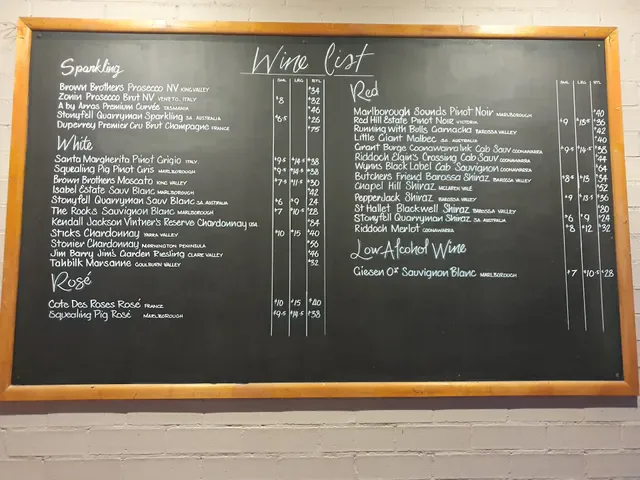 Wine list
Sparkling
SML LRG BTL
Brown Brothers Prosecco NV KING VALLEY $34
Zonin Prosecco Brut NV VENETO, ITALY $8 $32
A by Arras Premium Cuvée TASMANIA $46
Stonyfell Quarryman Sparkling SA. AUSTRALIA $6.5 $26
Duperrey Premier Cru Brut Champagne FRANCE $75
White
Santa Margherita Pinot Grigio ITALY $9.5 $14.5 $38
Squealing Pig Pinot Gris MARLBOROUGH $9.5 $14.5 $38
Brown Brothers Moscato KING VALLEY $7.5 $11.5 $30
Isabel Estate Sauv Blanc MARLBOROUGH $42
Stonyfell Quarryman Sauv Blanc SA. AUSTRALIA $6 $9 $24
The Rocks Sauvignon Blanc MARLBOROUGH $7 $10.5 $28
Kendall Jackson Vintner's Reserve Chardonnay USA $54
Sticks Chardonnay YARRA VALLEY $10 $15 $40
Stonier Chardonnay MORNINGTON PENINSULA $56
Jim Barry Jim's Garden Riesling CLARE VALLEY $46
Tahbilk Marsanne GOULBURN VALLEY $32
Rosé
Cote Des Roses Rosé FRANCE $10 $15 $40
Squealing Pig Rosé MARLBOROUGH $9.5 $14.5 $38
Red
SML LRG BTL
Marlborough Sounds Pinot Noir MARLBOROUGH $40
Red Hill Estate Pinot Noir VICTORIA $9 $13.5 $36
Running with Bulls Garnacha BAROSSA VALLEY $42
Little Giant Malbec SA. AUSTRALIA $40
Grant Burge Coonawarra Ink Cab Sauv COONAWARRA $9.5 $14.5 $38
Riddoch Elgin's Crossing Cab Sauv COONAWARRA $44
Wynns Black Label Cab Sauvignon COONAWARRA $64
Butchers Friend Barossa Shiraz BAROSSA VALLEY $8.5 $13 $34
Chapel Hill Shiraz MCLAREN VALE $52
PepperJack Shiraz BAROSSA VALLEY $9 $13.5 $36
St Hallet Blackwell Shiraz BAROSSA VALLEY $80
Stonyfell Quarryman Shiraz SA. AUSTRALIA $6 $9 $24
Riddoch Merlot COONAWARRA $8 $12 $32
Low Alcohol Wine
Giesen 0% Sauvignon Blanc MARLBOROUGH $7 $10.5 $28